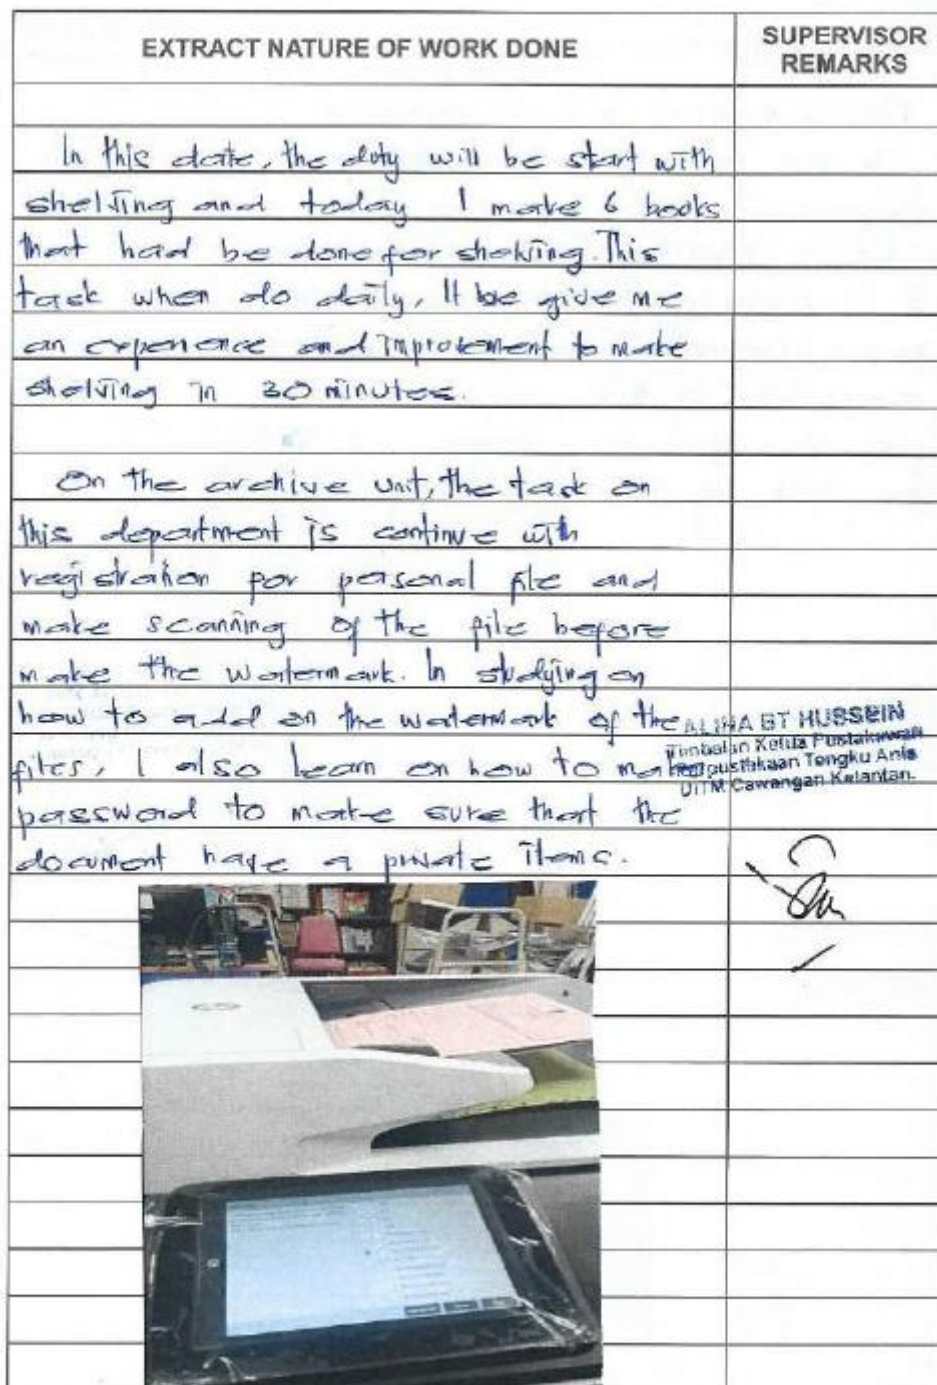 EXTRACT NATURE OF WORK DONE
SUPERVISOR
REMARKS
In this date, the duty will be start with
shelving and today I make 6 books
that had be done for shelving. This
task when do daily, It be give me
an experience and improvement to make
shelving in 30 minutes.
On the archive unit, the task on
this department is continue with
registration for personal file and
make scanning of the file before
make the watermark. In studying on
how to add on the watermark of the
files, I also learn on how to make
password to make sure that the
document have a private items.
ALINA BT HUSSEIN
Timbalan Ketua Pustakawan
Perpustakaan Tengku Anis
UiTM Cawangan Kelantan.